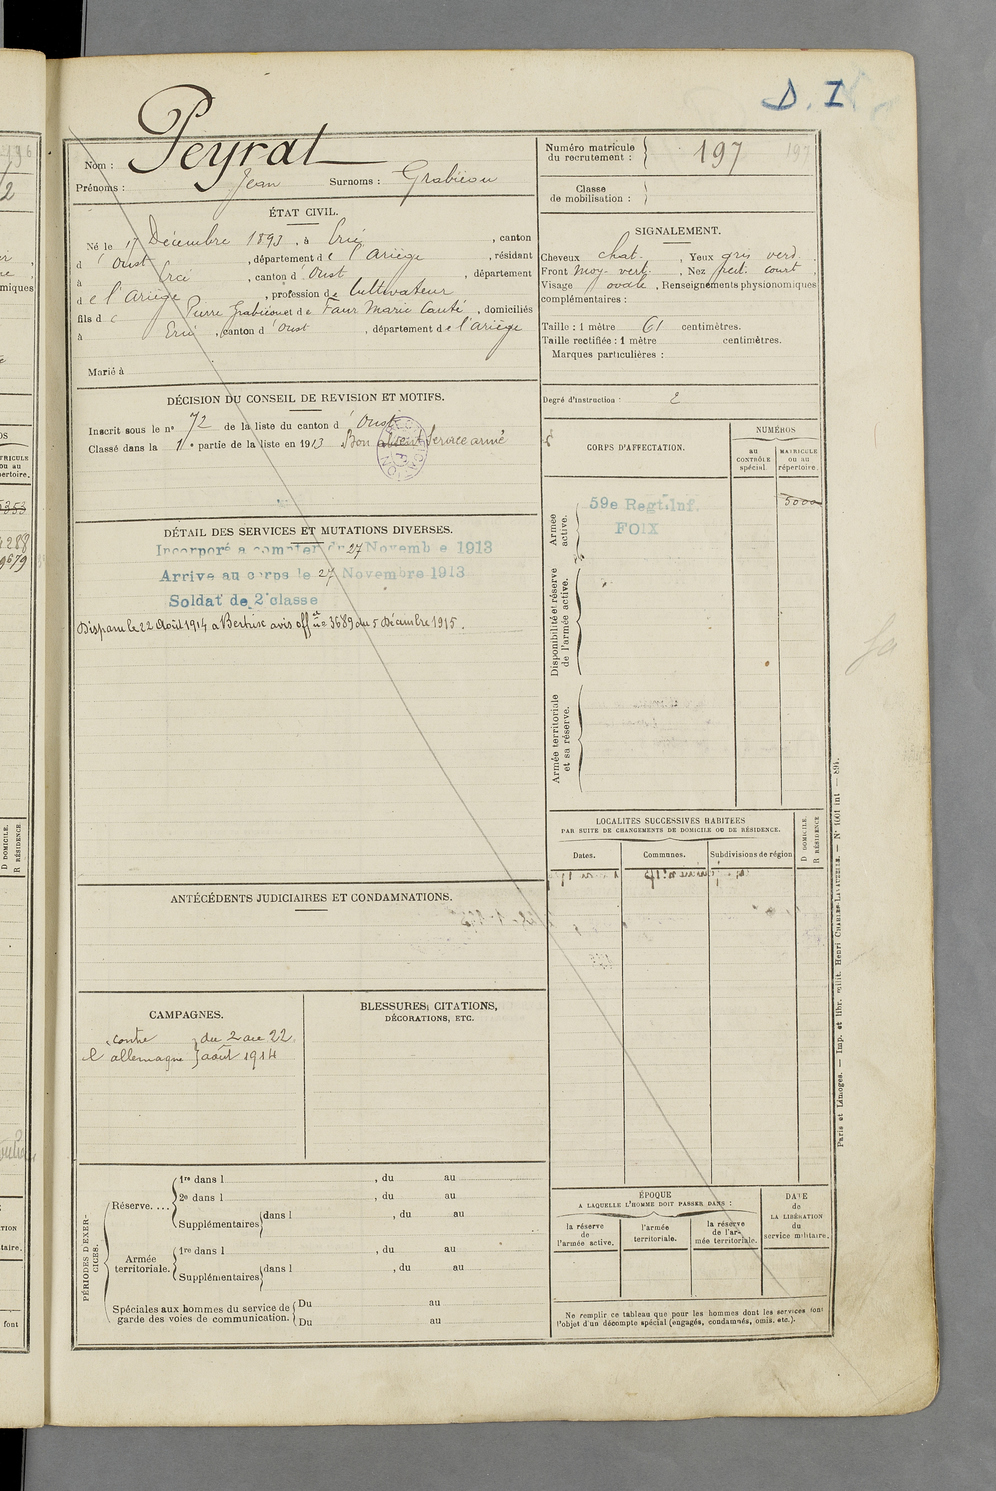 D. I
Nom : Peyrat
Prénoms : Jean Surnoms : Grabiéou
ÉTAT CIVIL.
Né le 17 Décembre 1893, à Ercé, canton
d'Oust, département de l'Ariège, résidant
à Ercé, canton d'Oust, département
de l'Ariège, profession de Cultivateur
fils de Pierre Grabiéou et de Faur Marie, domiciliés
à Ercé, canton d'Oust, département de l'ariège
Marié à
DÉCISION DU CONSEIL DE REVISION ET MOTIFS.
Inscrit sous le n° 72 de la liste du canton d'Oust
Classé dans la 1e partie de la liste en 1913 Bon service armé
DÉTAIL DES SERVICES ET MUTATIONS DIVERSES.
Incorporé a compter du 27 Novembre 1913
Arrive au corps le 27 Novembre 1913
Soldat de 2e classe
Disparu le 22 Août 1914 a Bertrix avis offel no 3689 du 5 Décembre 1915.
ANTÉCÉDENTS JUDICIAIRES ET CONDAMNATIONS.
CAMPAGNES.
contre } du 2 au 22
l'allemagne } août 1914
BLESSURES, CITATIONS,
DÉCORATIONS, ETC.
PÉRIODES D'EXERCICES.
Réserve....
1re dans l , du au
2e dans l , du au
Supplémentaires dans l , du au
du au
Armée territoriale.
1re dans l , du au
Supplémentaires dans l , du au
Spéciales aux hommes du service de garde des voies de communication.
Du au
Du au
Numéro matricule du recrutement : 197
197
Classe de mobilisation :
SIGNALEMENT.
Cheveux chat. , Yeux gris verd.
Front moy. vert. , Nez rect. court
Visage ovale , Renseignements physionomiques
complémentaires :
Taille : 1 mètre 61 centimètres.
Taille rectifiée : 1 mètre centimètres.
Marques particulières :
Degré d'instruction : 2
CORPS D'AFFECTATION.
NUMÉROS
au CONTRÔLE spécial.
MATRICULE ou au répertoire.
Armée active.
59e Regt. Inf.
FOIX
5000
Disponibilité et réserve de l'armée active.
Armée territoriale et sa réserve.
LOCALITÉS SUCCESSIVES HABITÉES
PAR SUITE DE CHANGEMENTS DE DOMICILE OU DE RÉSIDENCE.
Dates. Communes. Subdivisions de région
D DOMICILE.
R RÉSIDENCE
ÉPOQUE
A LAQUELLE L'HOMME DOIT PASSER DANS :
la réserve de l'armée active.
l'armée territoriale.
la réserve de l'armée territoriale.
DATE de LA LIBÉRATION du service militaire.
Ne remplir ce tableau que pour les hommes dont les services font
l'objet d'un décompte spécial (engagés, condamnés, omis, etc.).
Paris et Limoges. — Imp. et libr. milit. Henri CHARLES-LAVAUZELLE.